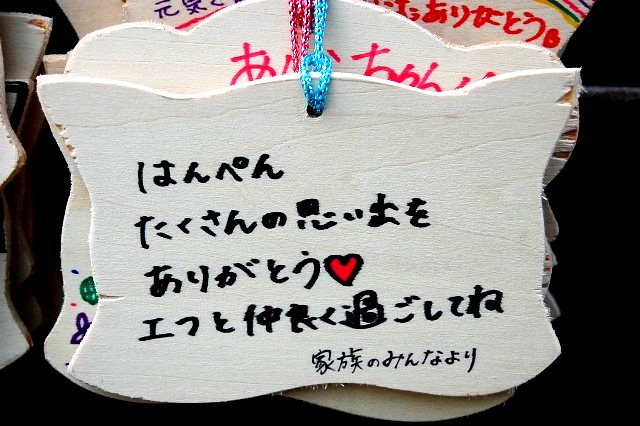 ありがとう
はんぺん
たくさんの思い出を
ありがとう♥
エフと仲良く過ごしてね
家族のみんなより